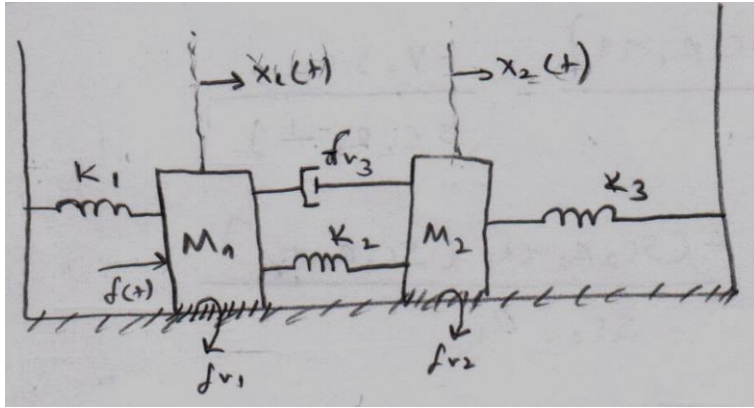 x₁(t)
x₂(t)
K1
fv3
K3
M1
K2
M2
f(t)
fv1
fv2